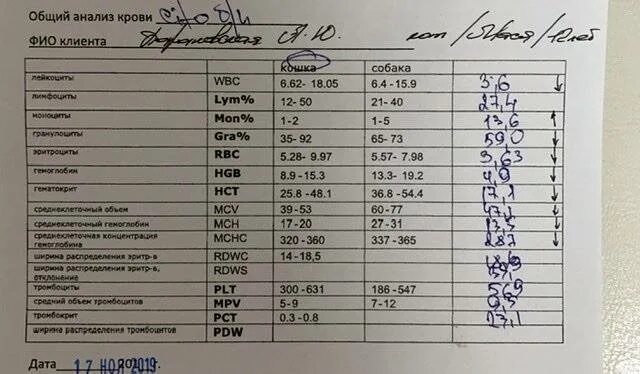 Общий анализ крови
ФИО клиента А.Ю. кот / / 12 лет
кошка собака
лейкоциты WBC 6.62- 18.05 6.4 - 15.9 3,6 ↓
лимфоциты Lym% 12- 50 21- 40 27,4
моноциты Mon% 1-2 1-5 13,6 ↑
гранулоциты Gra% 35- 92 65- 73 59,0 ↓
эритроциты RBC 5.28- 9.97 5.57- 7.98 3,63 ↓
гемоглобин HGB 8.9 - 15.3 13.3- 19.2 4,9 ↓
гематокрит HCT 25.8 -48.1 36.8 - 54.4 17,1 ↓
среднеклеточный объем MCV 39- 53 60- 77 47,1 ↓
среднеклеточный гемоглобин MCH 17- 20 27- 31 13,5 ↓
среднеклеточная концентрация гемоглобина MCHC 320 -360 337- 365 287 ↓
ширина распределения эритр-в RDWC 14 - 18,5
ширина распределения эритр-в, отклонение RDWS
тромбоциты PLT 300 -631 186 -547 569
средний объем тромбоцитов MPV 5-9 7-12
тромбокрит PCT 0.3 - 0.8 23,1
ширина распределения тромбоцитов PDW
Дата 17 НОЯ 2019 г.